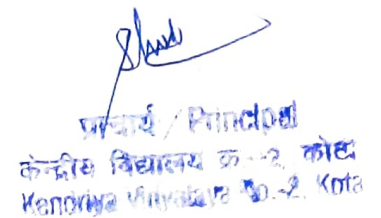 प्राचार्य / Principal
केन्द्रीय विद्यालय क्र.-2, कोटा
Kendriya Vidyalaya No.-2, Kota